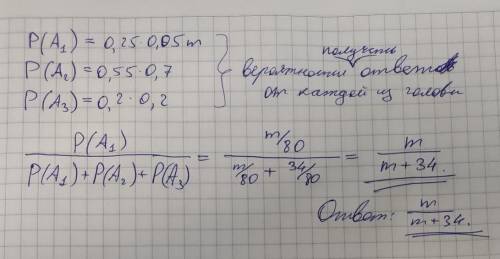 P(A₁) = 0,25·0,05m
P(A₂) = 0,55·0,7
P(A₃) = 0,2·0,2
получить
вероятности ответов
от каждой из головы
P(A₁) / (P(A₁)+P(A₂)+P(A₃)) = (m/80) / (m/80 + 34/80) = m / (m+34.)
Ответ: m / (m+34.)